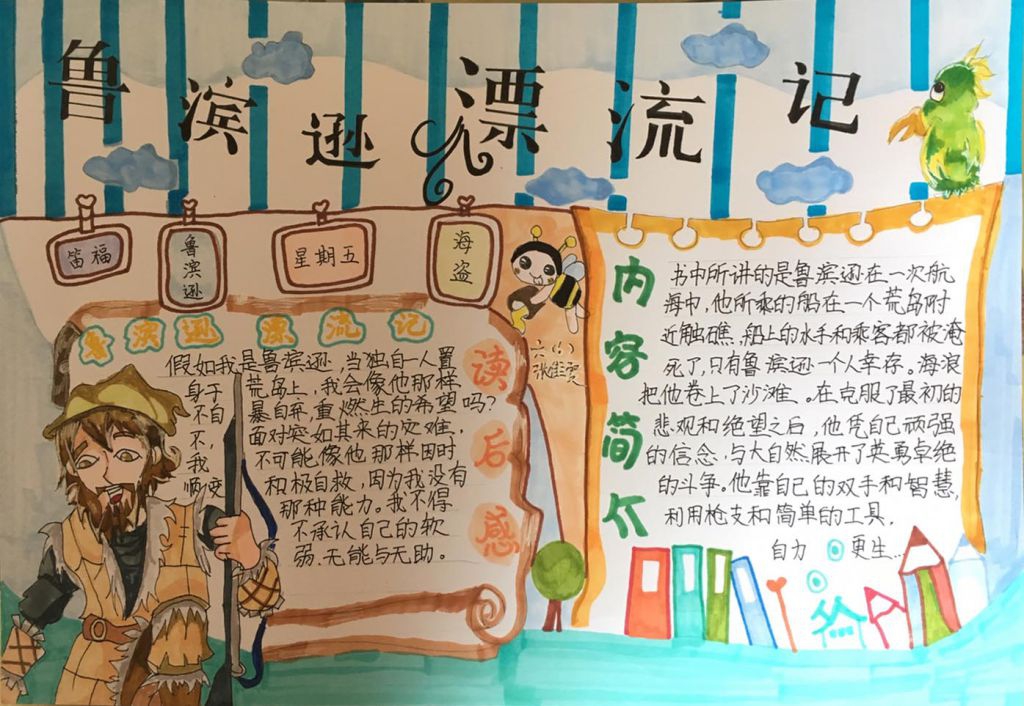 鲁滨逊漂流记
笛福
鲁滨逊
星期五
海盗
鲁滨逊漂流记
读后感
假如我是鲁滨逊，当独自一人置
身于荒岛上，我会像他那样
不自暴自弃，重燃生的希望吗？
不，面对突如其来的灾难，
我不可能像他那样因时
顺变和极自救，因为我没有
那种能力。我不得
不承认自己的软
弱、无能与无助。
六（）
内容简介
书中所讲的是鲁滨逊在一次航
海中，他所乘的船在一个荒岛附
近触礁，船上的水手和乘客都被淹
死了，只有鲁滨逊一个人幸存。海浪
把他卷上了沙滩、。在克服了最初的
悲观和绝望之后，他凭自己顽强
的信念，与大自然展开了英勇卓绝
的斗争。他靠自己的双手和智慧，
利用枪支和简单的工具，
自力更生…